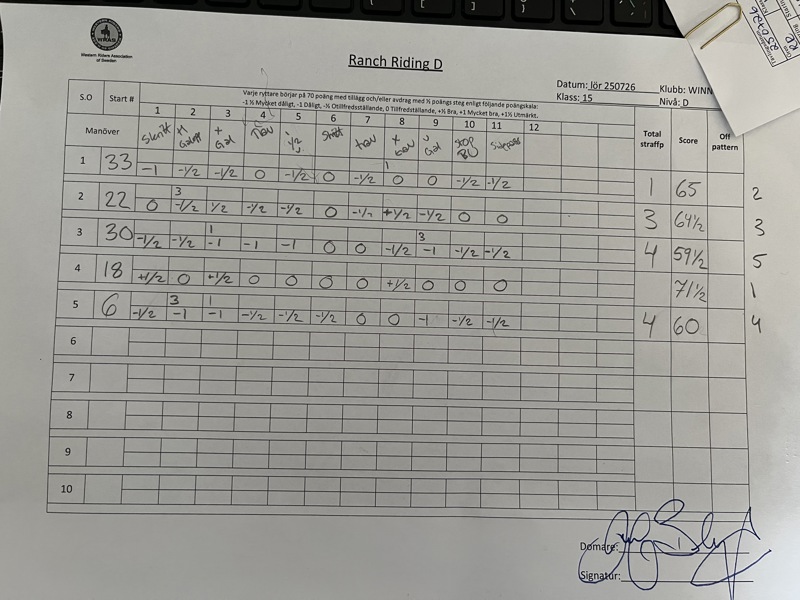 WRAS
Western Riders Association
of Sweden
Ranch Riding D
Datum: lör 250726 Klubb: WINN
Klass: 15 Nivå: D
250726
S.O Start # Varje ryttare börjar på 70 poäng med tillägg och/eller avdrag med ½ poängs steg enligt följande poängskala:
-1 ½ Mycket dåligt, -1 Dåligt, -½ Otillfredsställande, 0 Tillfredställande, +½ Bra, +1 Mycket bra, +1½ Utmärkt.
1 2 3 4 5 6 7 8 9 10 11 12
Manöver Skritt Galopp Gal 1/2 Skritt Gal Stop Total straffp Score Off pattern
1 33 -1 -1/2 -1/2 0 -1/2 0 -1/2 1 0 0 -1/2 -1/2 1 65 2
2 22 0 3 -1/2 1/2 -1/2 -1/2 0 -1/2 +1/2 -1/2 0 0 3 64½ 3
3 30 -1/2 -1/2 1 -1 -1 -1 0 0 -1/2 3 -1 -1/2 -1/2 4 59½ 5
4 18 +1/2 0 +1/2 0 0 0 0 +1/2 0 0 0 71½ 1
5 6 -1/2 3 -1 1 -1 -1/2 -1/2 -1/2 0 0 -1 -1/2 -1/2 4 60 4
6
7
8
9
10
Domare:
Signatur: